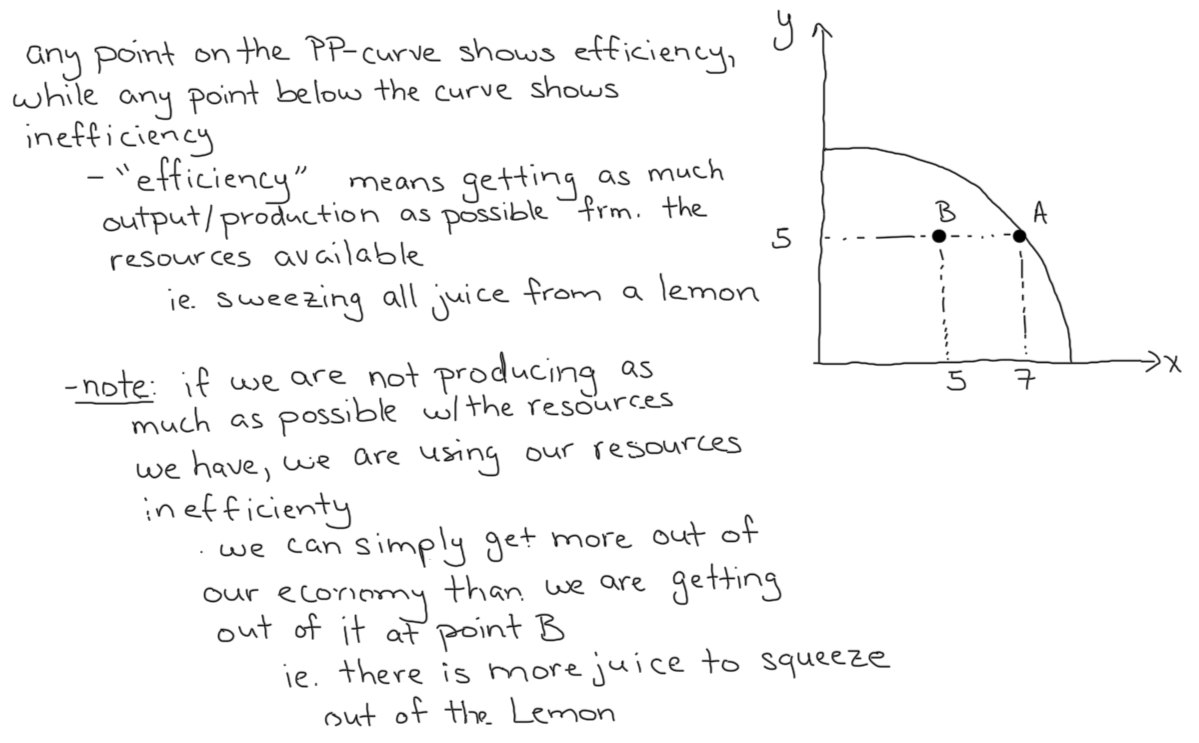 any point on the PP-curve shows efficiency,
while any point below the curve shows
inefficiency
- "efficiency" means getting as much
output/production as possible frm. the
resources available
ie. sweezing all juice from a lemon
-note: if we are not producing as
much as possible w/the resources
we have, we are using our resources
inefficienty
· we can simply get more out of
our economy than we are getting
out of it at point B
ie. there is more juice to squeeze
out of the Lemon
y
B A
5
5 7
x